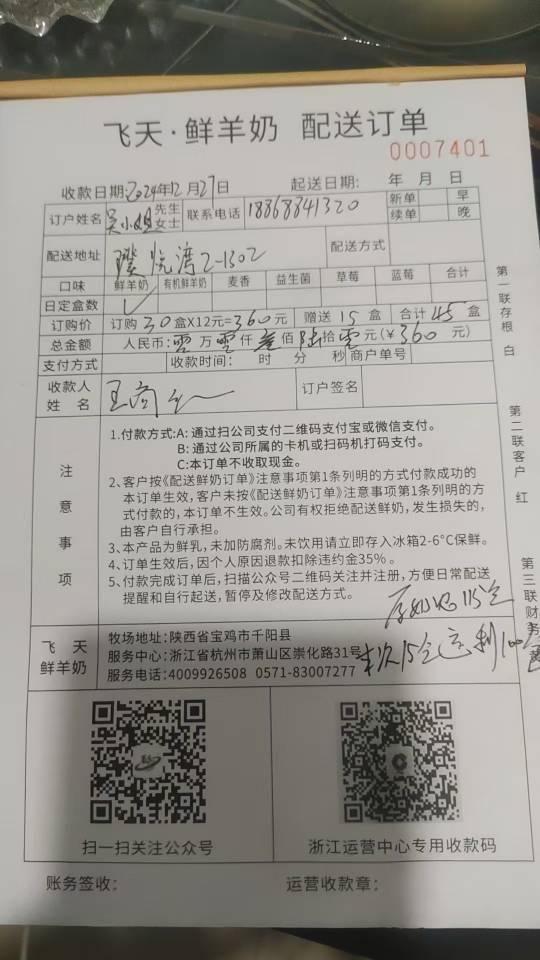 飞天·鲜羊奶 配送订单
0007401
收款日期:2024年12月27日 起送日期: 年 月 日
订户姓名 吴小姐 先生 女士 联系电话 18868841320 新单 早 续单 晚
配送地址 璞悦湾2-1302 配送方式
口味 鲜羊奶 有机鲜羊奶 麦香 益生菌 草莓 蓝莓 合计
日定盒数 ✓
订购价 订购30盒X12元=360元 赠送15盒 合计45盒
总金额 人民币:零万零仟叁佰陆拾零元(¥360元)
支付方式 收款时间: 时 分 秒 商户单号
收款人姓名 订户签名
注意事项
1.付款方式:A:通过扫公司支付二维码支付宝或微信支付。
B:通过公司所属的卡机或扫码机打码支付。
C:本订单不收取现金。
2、客户按《配送鲜奶订单》注意事项第1条列明的方式付款成功的
本订单生效,客户未按《配送鲜奶订单》注意事项第1条列明的方
式付款的,本订单不生效。公司有权拒绝配送鲜奶,发生损失的,
由客户自行承担。
3、本产品为鲜乳,未加防腐剂。未饮用请立即存入冰箱2-6°C保鲜。
4、订单生效后,因个人原因退款扣除违约金35%。
5、付款完成订单后,扫描公众号二维码关注并注册,方便日常配送
提醒和自行起送,暂停及修改配送方式。
飞天鲜羊奶
牧场地址:陕西省宝鸡市千阳县
服务中心:浙江省杭州市萧山区崇化路31号
服务电话:4009926508 0571-83007277
扫一扫关注公众号
浙江运营中心专用收款码
账务签收:
运营收款章:
第一联存根 白
第二联客户 红
第三联财务 黄